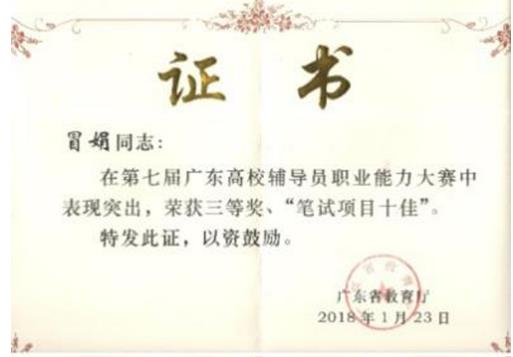 证 书
冒娟同志：
在第七届广东高校辅导员职业能力大赛中
表现突出，荣获三等奖、“笔试项目十佳”。
特发此证，以资鼓励。
广东省教育厅
2018年1月23日